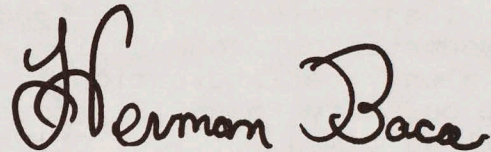 Herman Baca